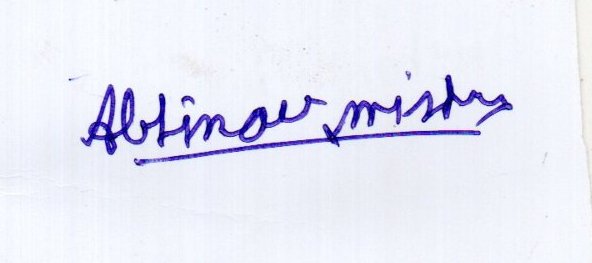 Abhinav mishra